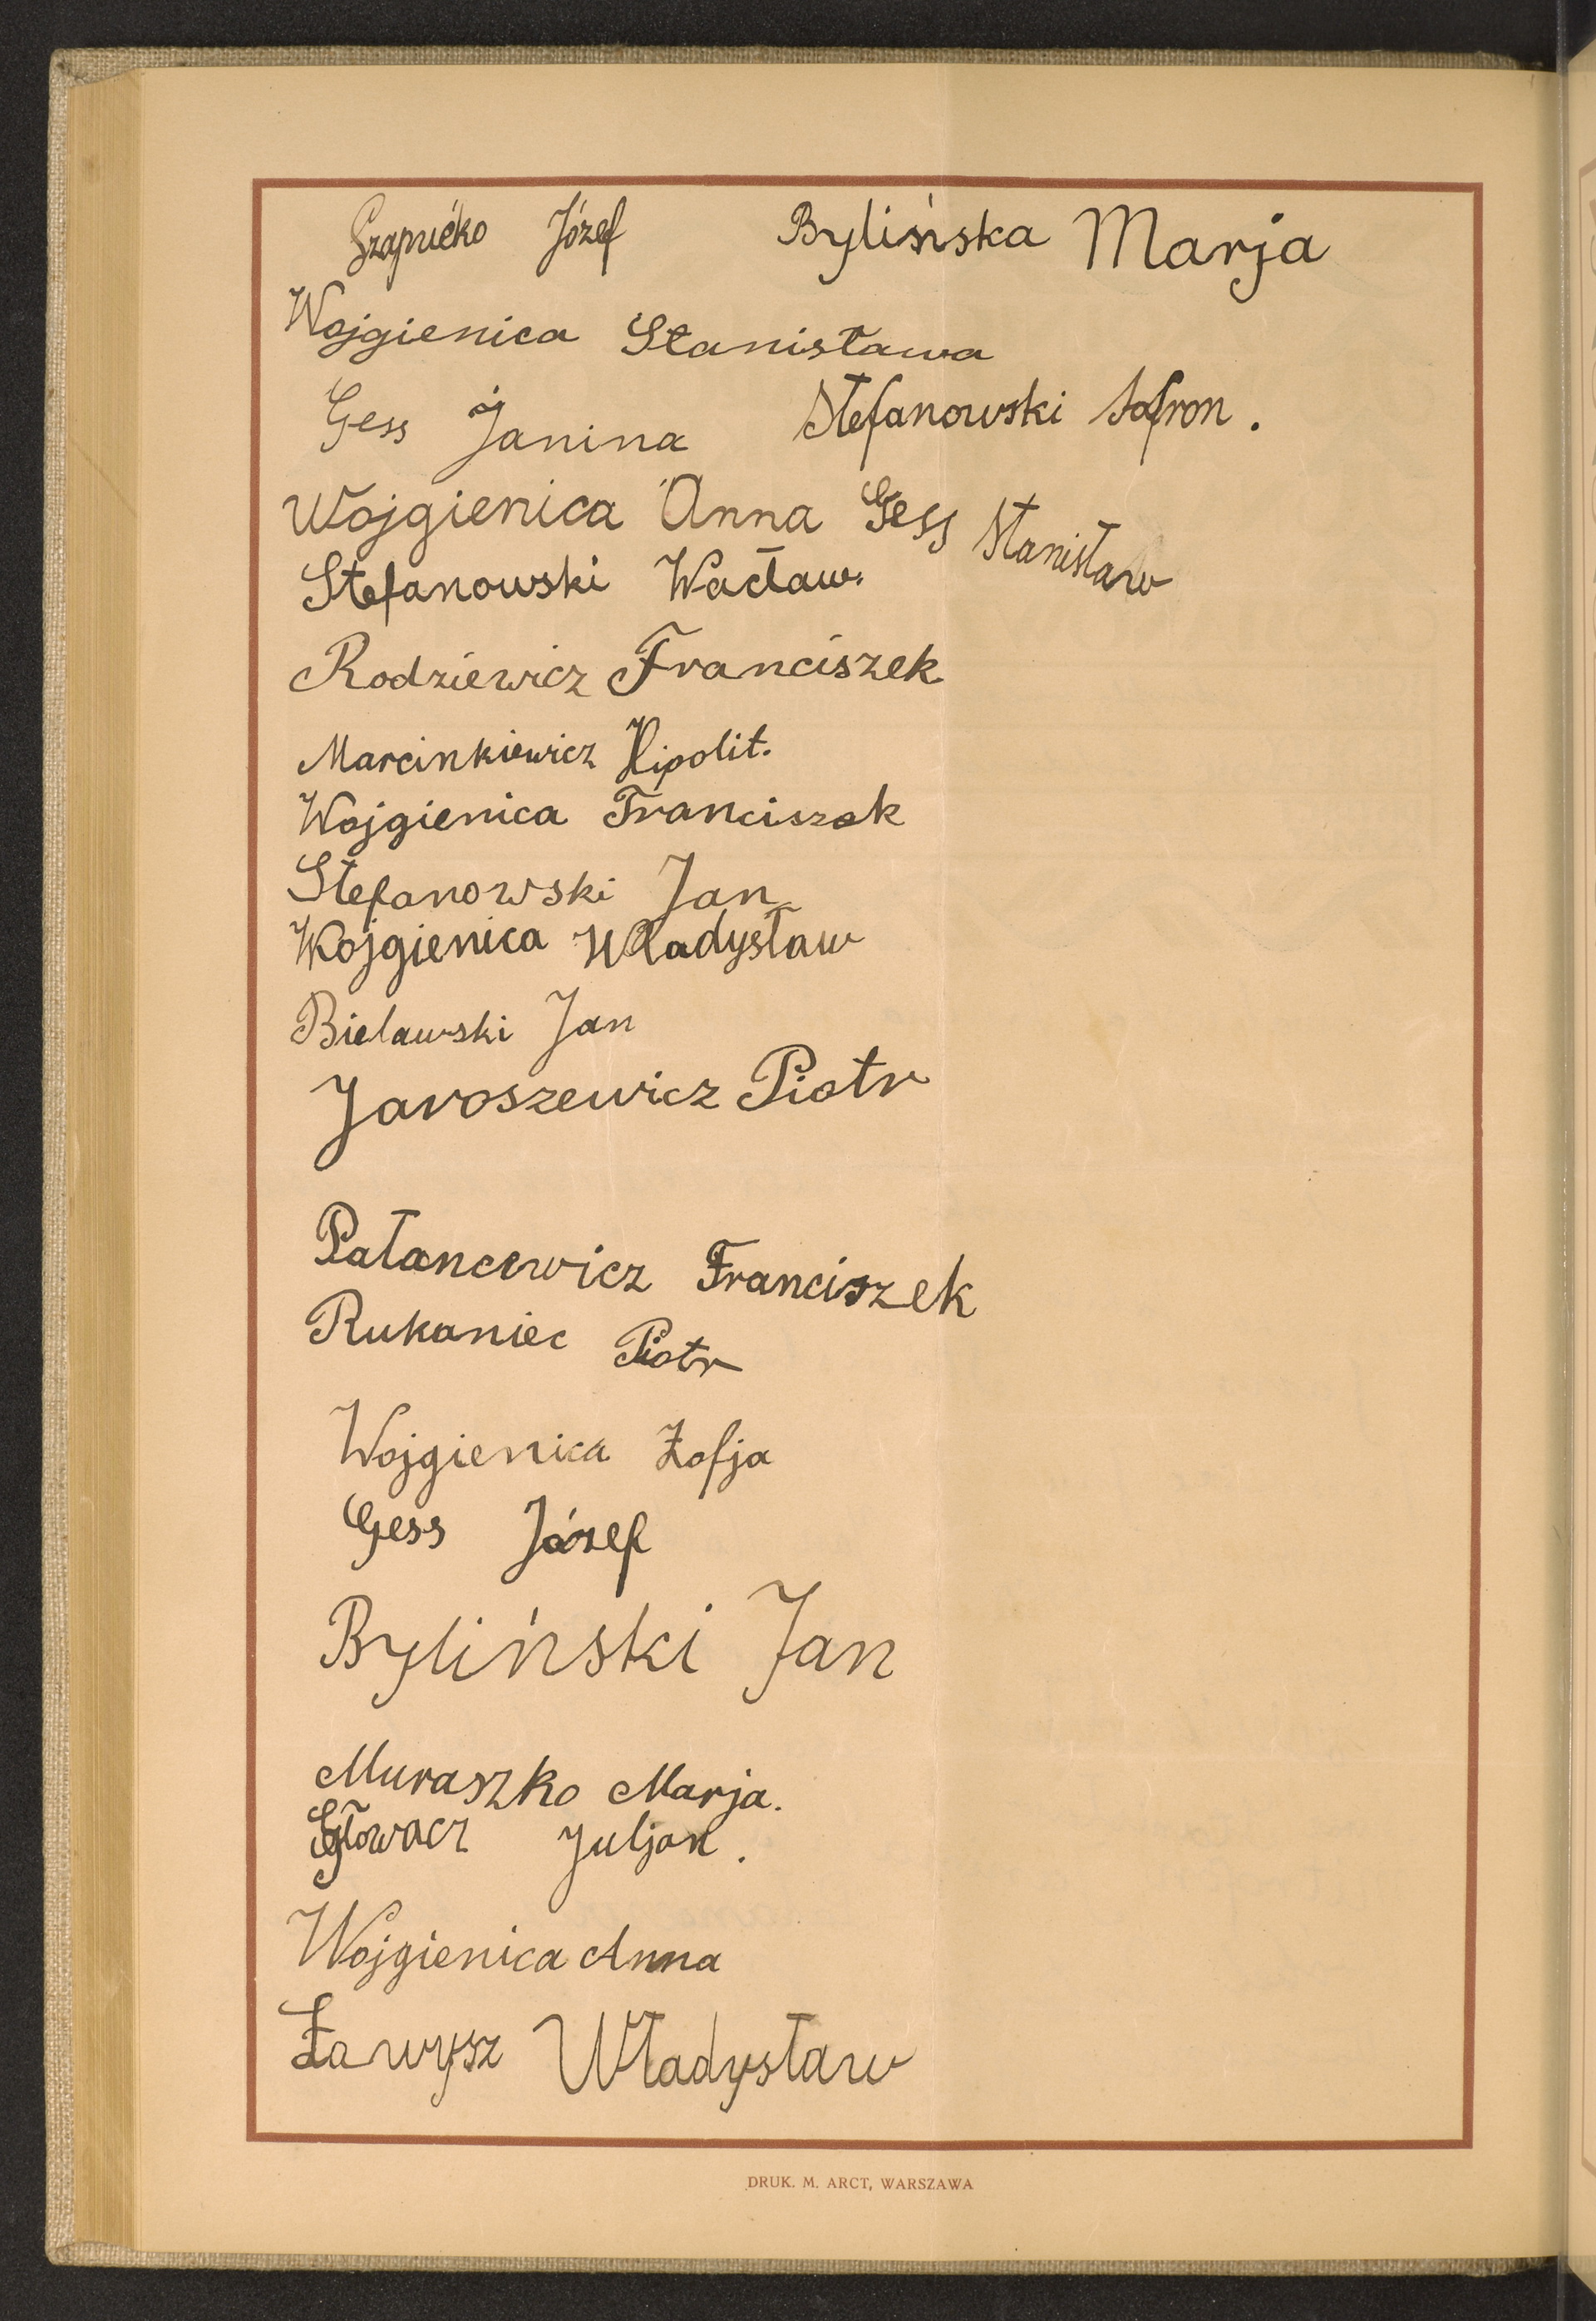 Szapućko Józef Bylińska Marja
Wojgienica Stanisława
Gess Janina Stefanowski Sofron.
Wojgienica Anna Gess Stanisław
Stefanowski Wacław.
Rodziewicz Franciszek
Marcinkiewicz Hipolit.
Wojgienica Franciszek
Stefanowski Jan
Wojgienica Władysław
Bielawski Jan
Jaroszewicz Piotr
Pałancewicz Franciszek
Rukaniec Piotr
Wojgienica Zofja
Gess Józef
Byliński Jan
Muraszko Marja.
Głowacz Juljan.
Wojgienica Anna
Ławysz Władysław
DRUK. M. ARCT, WARSZAWA